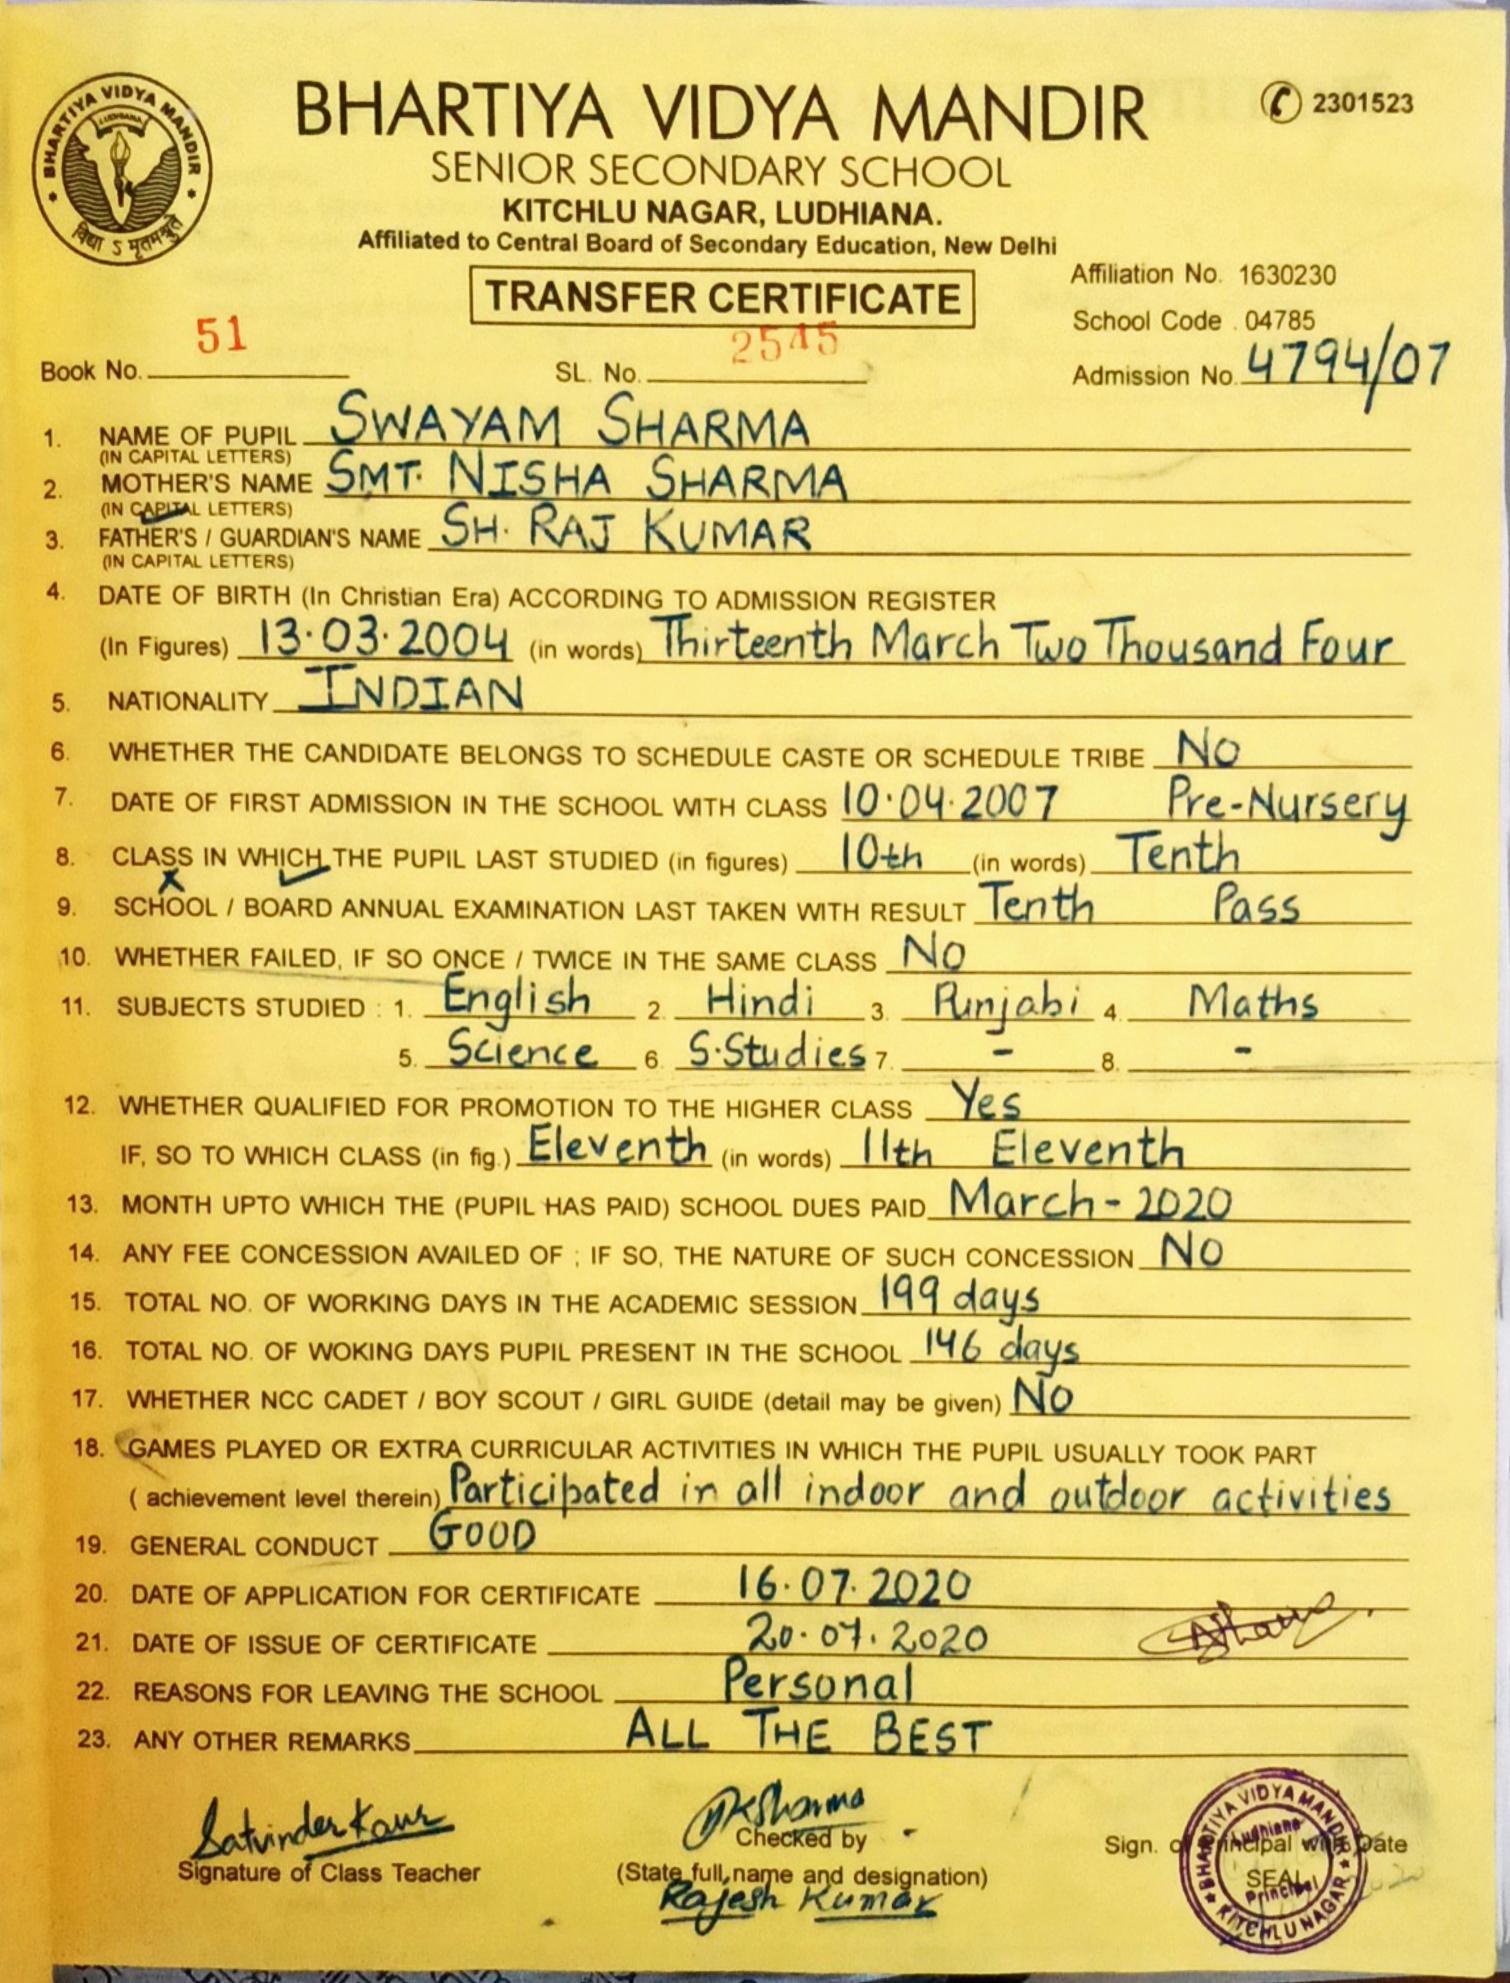 BHARTIYA VIDYA MANDIR
LUDHIANA
विद्या ऽ मृतमश्नुते
BHARTIYA VIDYA MANDIR
2301523
SENIOR SECONDARY SCHOOL
KITCHLU NAGAR, LUDHIANA.
Affiliated to Central Board of Secondary Education, New Delhi
TRANSFER CERTIFICATE
Affiliation No. 1630230
School Code . 04785
Book No. 51 SL. No. 2545 Admission No. 4794/07
1. NAME OF PUPIL SWAYAM SHARMA
(IN CAPITAL LETTERS)
2. MOTHER'S NAME SMT. NISHA SHARMA
(IN CAPITAL LETTERS)
3. FATHER'S / GUARDIAN'S NAME SH. RAJ KUMAR
(IN CAPITAL LETTERS)
4. DATE OF BIRTH (In Christian Era) ACCORDING TO ADMISSION REGISTER
(In Figures) 13.03.2004 (in words) Thirteenth March Two Thousand Four
5. NATIONALITY INDIAN
6. WHETHER THE CANDIDATE BELONGS TO SCHEDULE CASTE OR SCHEDULE TRIBE NO
7. DATE OF FIRST ADMISSION IN THE SCHOOL WITH CLASS 10.04.2007 Pre-Nursery
8. CLASS IN WHICH THE PUPIL LAST STUDIED (in figures) 10th (in words) Tenth
9. SCHOOL / BOARD ANNUAL EXAMINATION LAST TAKEN WITH RESULT Tenth Pass
10. WHETHER FAILED, IF SO ONCE / TWICE IN THE SAME CLASS NO
11. SUBJECTS STUDIED : 1. English 2. Hindi 3. Punjabi 4. Maths
5. Science 6. S.Studies 7. - 8. -
12. WHETHER QUALIFIED FOR PROMOTION TO THE HIGHER CLASS Yes
IF, SO TO WHICH CLASS (in fig.) Eleventh (in words) 11th Eleventh
13. MONTH UPTO WHICH THE (PUPIL HAS PAID) SCHOOL DUES PAID March - 2020
14. ANY FEE CONCESSION AVAILED OF ; IF SO, THE NATURE OF SUCH CONCESSION NO
15. TOTAL NO. OF WORKING DAYS IN THE ACADEMIC SESSION 199 days
16. TOTAL NO. OF WOKING DAYS PUPIL PRESENT IN THE SCHOOL 146 days
17. WHETHER NCC CADET / BOY SCOUT / GIRL GUIDE (detail may be given) NO
18. GAMES PLAYED OR EXTRA CURRICULAR ACTIVITIES IN WHICH THE PUPIL USUALLY TOOK PART
( achievement level therein) Participated in all indoor and outdoor activities
19. GENERAL CONDUCT GOOD
20. DATE OF APPLICATION FOR CERTIFICATE 16.07.2020
21. DATE OF ISSUE OF CERTIFICATE 20.07.2020
22. REASONS FOR LEAVING THE SCHOOL Personal
23. ANY OTHER REMARKS ALL THE BEST
Satvinder Kaur
Signature of Class Teacher
Sharma
Checked by
(State full name and designation)
Rajesh Kumar
Sign. of Principal with Date
SEAL
BHARTIYA VIDYA MANDIR
Ludhiana
Principal
KITCHLU NAGAR